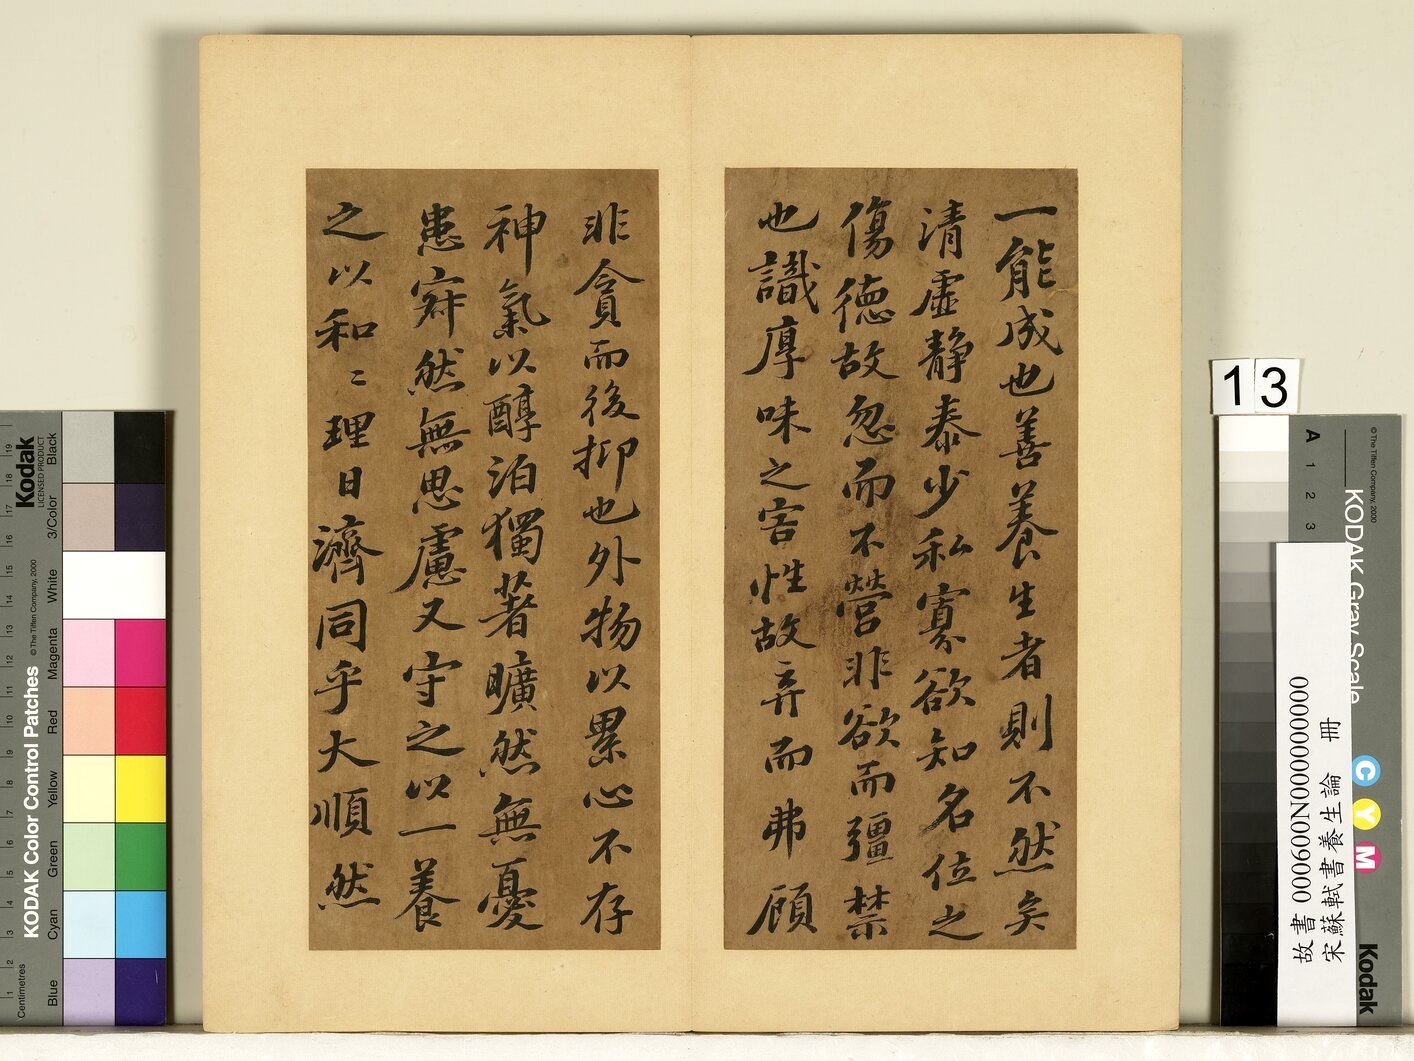 一能成也善養生者則不然矣
清虛靜泰少私寡欲知名位之
傷德故忽而不營非欲而彊禁
也識厚味之害性故弃而弗顧
非貪而後抑也外物以累心不存
神氣以醇泊獨著曠然無憂
患寂然無思慮又守之以一養
之以和〻理日濟同乎大順然
13
KODAK Color Control Patches
© The Tiffen Company, 2000
Kodak
LICENSED PRODUCT
Centimetres
1 2 3 4 5 6 7 8 9 10 11 12 13 14 15 16 17 18 19
Blue
Cyan
Green
Yellow
Red
Magenta
White
3/Color
Black
KODAK Gray Scale
© The Tiffen Company, 2000
A 1 2 3
C Y M
Kodak
故書 000600N000000000
宋蘇軾書養生論 冊